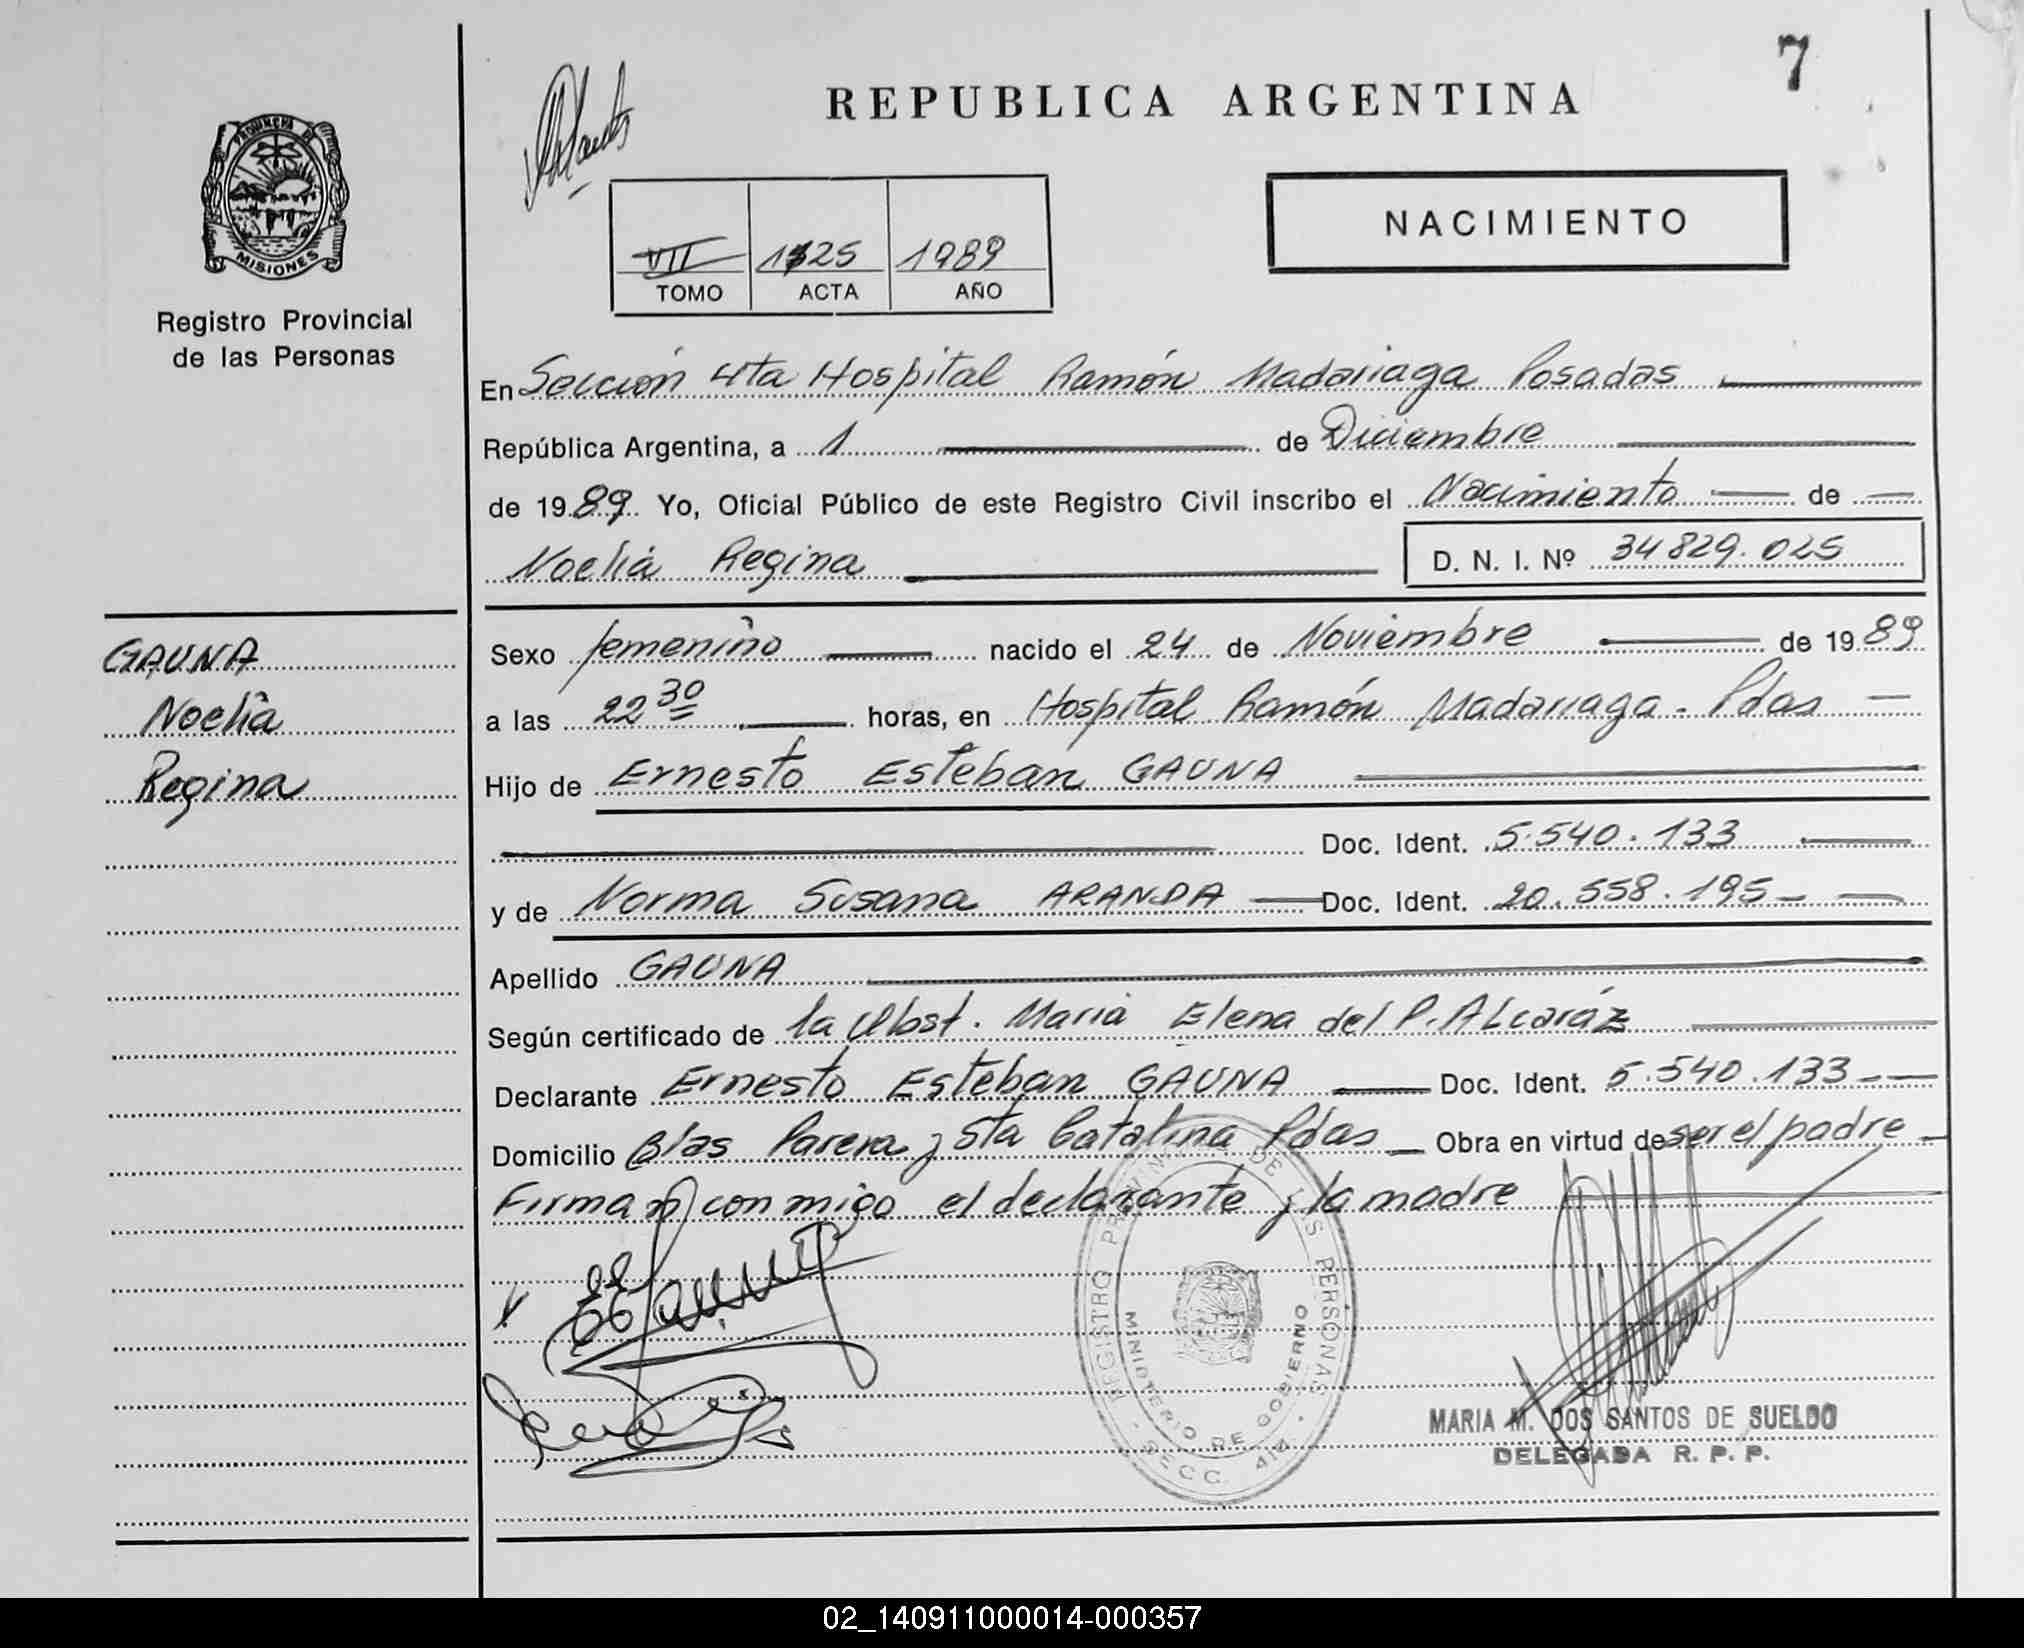 7
REPUBLICA ARGENTINA
PROVINCIA DE
MISIONES
Registro Provincial
de las Personas
NACIMIENTO
VII 1325 1989
TOMO ACTA AÑO
En Sección 4ta Hospital Ramón Madariaga Posadas
República Argentina, a 1 de Diciembre
de 1989 Yo, Oficial Público de este Registro Civil inscribo el Nacimiento de
Noelia Regina D. N. I. Nº 34829.025
GAUNA
Noelia
Regina
Sexo femenino nacido el 24 de Noviembre de 1989
a las 22 30 horas, en Hospital Ramón Madariaga - Pdas
Hijo de Ernesto Esteban GAUNA
Doc. Ident. 5.540.133
y de Norma Susana ARANDA Doc. Ident. 20.558.195
Apellido GAUNA
Según certificado de la Obst. Maria Elena del P. ALcaráz
Declarante Ernesto Esteban GAUNA Doc. Ident. 5.540.133
Domicilio Blas Parera y Sta Catalina Pdas Obra en virtud de ser el padre
Firman conmigo el declarante y la madre
REGISTRO PROVINCIAL DE LAS PERSONAS
MINISTERIO DE GOBIERNO
SECC. 4ta.
MARIA M. DOS SANTOS DE SUELDO
DELEGADA R. P. P.
02_140911000014-000357